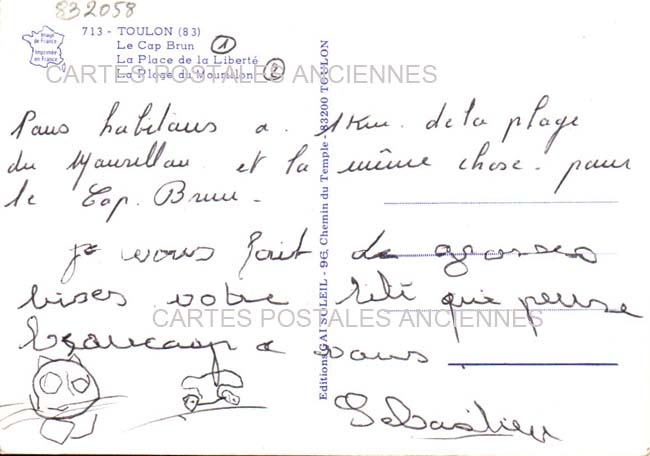 832058
Image de France
Imprimée en France
713 - TOULON (83)
Le Cap Brun ①
La Place de la Liberté
La Plage du Mourillon ②
CARTES POSTALES ANCIENNES
Editions GAI SOLEIL - 96, Chemin du Temple - 83200 TOULON
Nous habitons a 1 Km de la plage
du Mourillon et la même chose pour
le Cap Brun.
je vous fait de grosses
bises votre titi qui pense
beaucoup a vous
CARTES POSTALES ANCIENNES
Sebastien